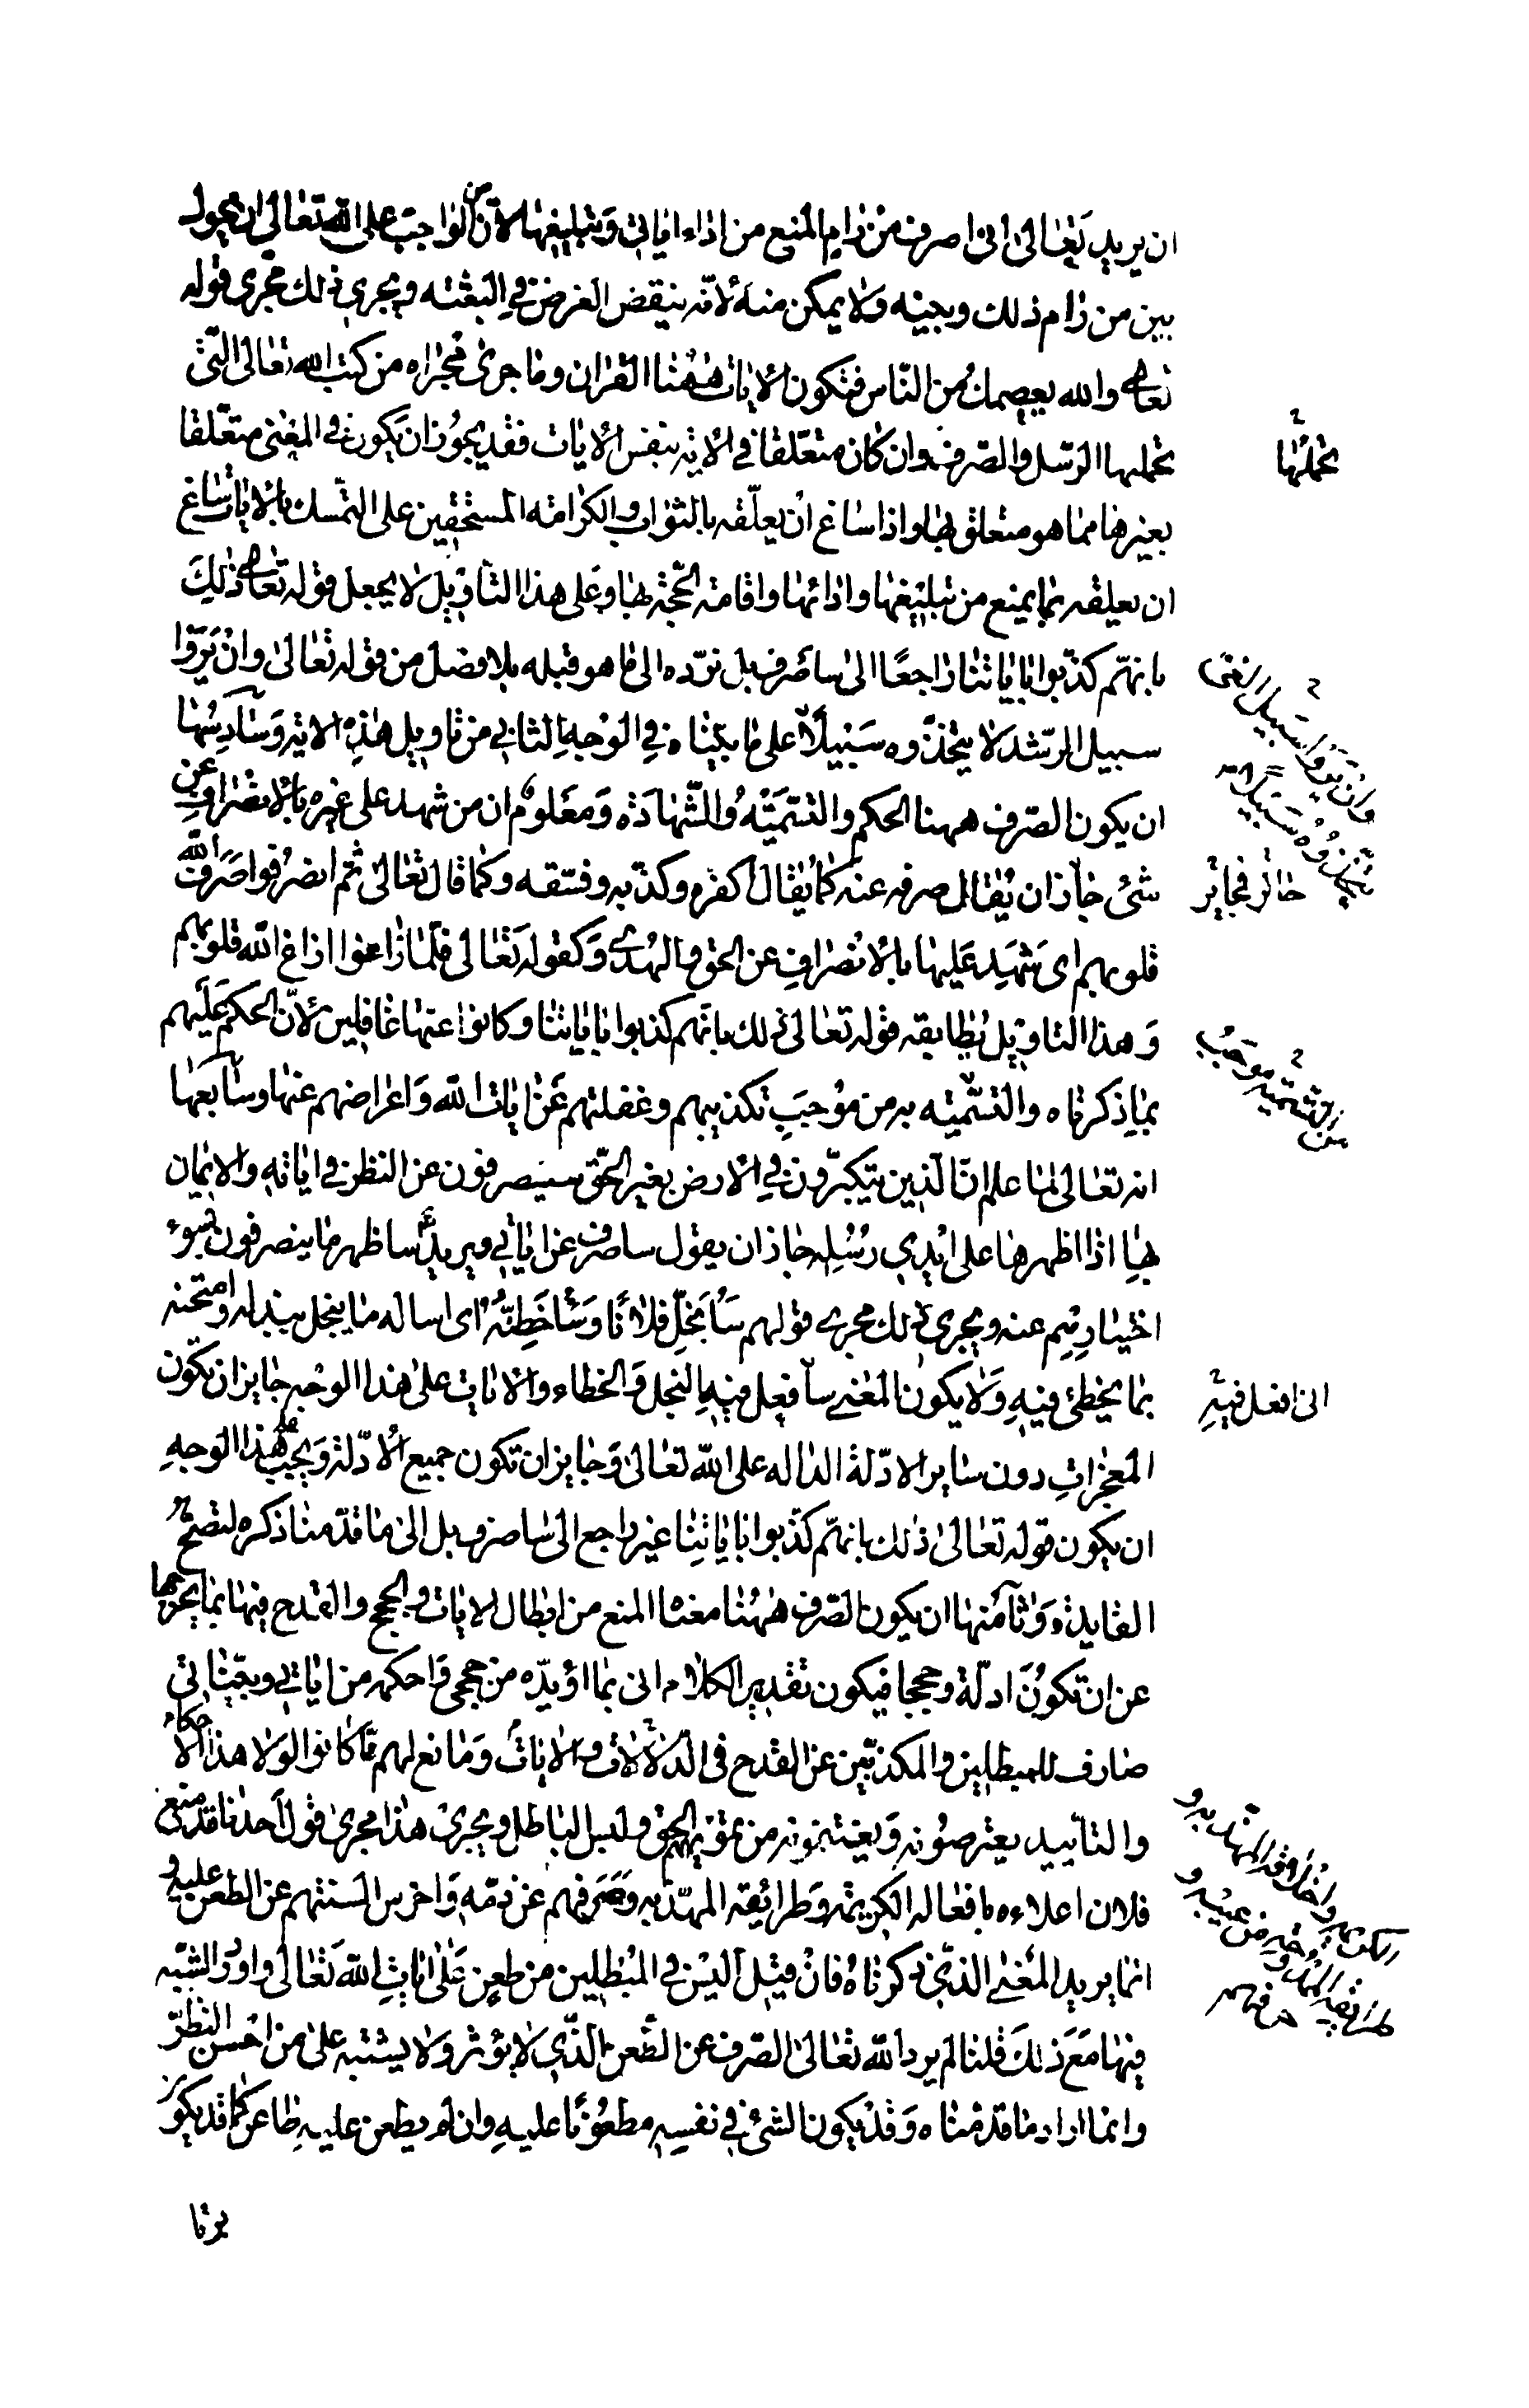 ان يريد تعالى انى اصرف من رام المنع من اداء اياتى وتبليغها لان من الواجب على الله تعالى ان يحول
بين من رام ذلك وبينه ولا يمكن منه لانه ينقض الغرض في البعثه ويجري ذلك مجرى قوله
تعالى والله يعصمك من الناس فتكون الايات ههنا القران وما جرى مجراه من كتب الله تعالى التى
تحملها الرسل والصرف وان كان متعلقا في الاية بنفس الايات فقد يجوز ان يكون في المعنى متعلقا
بغيرها مما هو متعلق بها واذا ساغ ان يعلقه بالثواب والكرامة المستحقين على التمسك بالايات ساغ
ان يعلقه بما يمنع من تبليغها وادائها واقامة الحجة بها وعلى هذا التاويل لا يجعل قوله تعالى ذلك
بانهم كذبوا باياتنا راجعا الى ساصرف بل نرده الى ما هو قبله بلا فصل من قوله تعالى وان يروا
سبيل الرشد لا يتخذوه سبيلا على ما بيناه في الوجه الثاني من تاويل هذه الاية وسادسها
ان يكون الصرف ههنا الحكم والتسمية والشهادة ومعلوم ان من شهد على غيره بالانصراف عن
شئ جاز ان يقال صرفه عنه كما يقال اكفره وكذبه وفسقه وكما قال تعالى ثم انصرفوا صرف الله
قلوبهم اى شهد عليها بالانصراف عن الحق والهدى وكقوله تعالى فلما زاغوا ازاغ الله قلوبهم
وهذا التاويل يطابقه قوله تعالى ذلك بانهم كذبوا باياتنا وكانوا عنها غافلين لان الحكم عليهم
بما ذكرناه والتسمية به من موجب تكذيبهم وغفلتهم عن ايات الله واعراضهم عنها وسابعها
انه تعالى لما علم ان الذين يتكبرون في الارض بغير الحق سينصرفون عن النظر في اياته والايمان
بها اذا اظهرها على ايدي رسله جاز ان يقول ساصرف عن اياتي ويريد ساظهر ما ينصرفون بسوء
اختيارهم عنه ويجري ذلك مجرى قولهم سابخل فلانا وساخطئه اى اساله ما يبخل ببذله وامتحنه
بما يخطئ فيه ولا يكون المعنى سافعل فيه البخل والخطاء والايات على هذا الوجه جايز ان تكون
المعجزات دون ساير الادلة الدالة على الله تعالى وجايز ان تكون جميع الادلة ويجب على هذا الوجه
ان يكون قوله تعالى ذلك بانهم كذبوا باياتنا غير راجع الى ساصرف بل الى ما قدمنا ذكره لتصح
الفايدة وثامنها ان يكون الصرف ههنا معناه المنع من ابطال الايات والحجج والقدح فيها بما يخرجها
عن ان تكون ادلة وحججا فيكون تقدير الكلام انى بما اؤيده من حججى واحكمه من اياتي وبيناتي
صارف للمبطلين والمكذبين عن القدح في الدلالات والايات ومانع لهم مما كانوا لولا هذا الاحكام
والتاييد يعترضونه ويغتنمونه من تمويههم الحق ولبس الباطل ويجرى هذا مجرى قول احدنا قد منع
فلان اعداءه بافعاله الكريمة وطرائقه المهذبه وصرفهم عن ذمه واخرس السنتهم عن الطعن عليه و
انما يريد المعنى الذي ذكرناه فان قيل اليس في المبطلين من طعن على ايات الله تعالى واورد الشبه
فيها مع ذلك قلنا لم يرد الله تعالى الصرف عن الطعن الذي لا يؤثر ولا يشتبه على من احسن النظر
وانما اراد ما قدمناه وقد يكون الشئ في نفسه مطعونا عليه وان لم يطعن عليه طاعن كما قد يكون
بريئا
تحملتها
وان يروا سبيل الغى
يتخذوه سبيلا
جائز فجايز
من التسمية موجب
انى افعل فيه